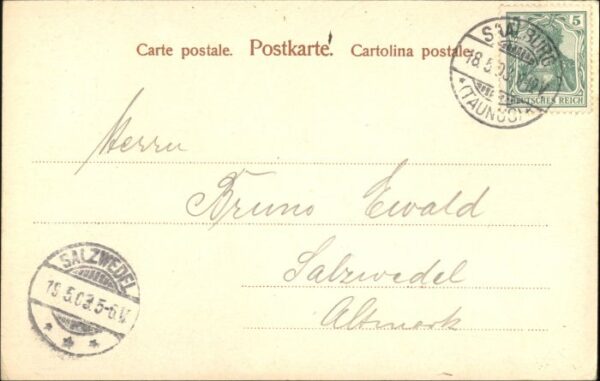 Carte postale. Postkarte. Cartolina postale.
SAALBURG
18.5.03.
*(TAUNUS)*
5
DEUTSCHES REICH
Herrn
Bruno Ewald
Salzwedel
Altmark
SALZWEDEL
5.03.5-6.V.